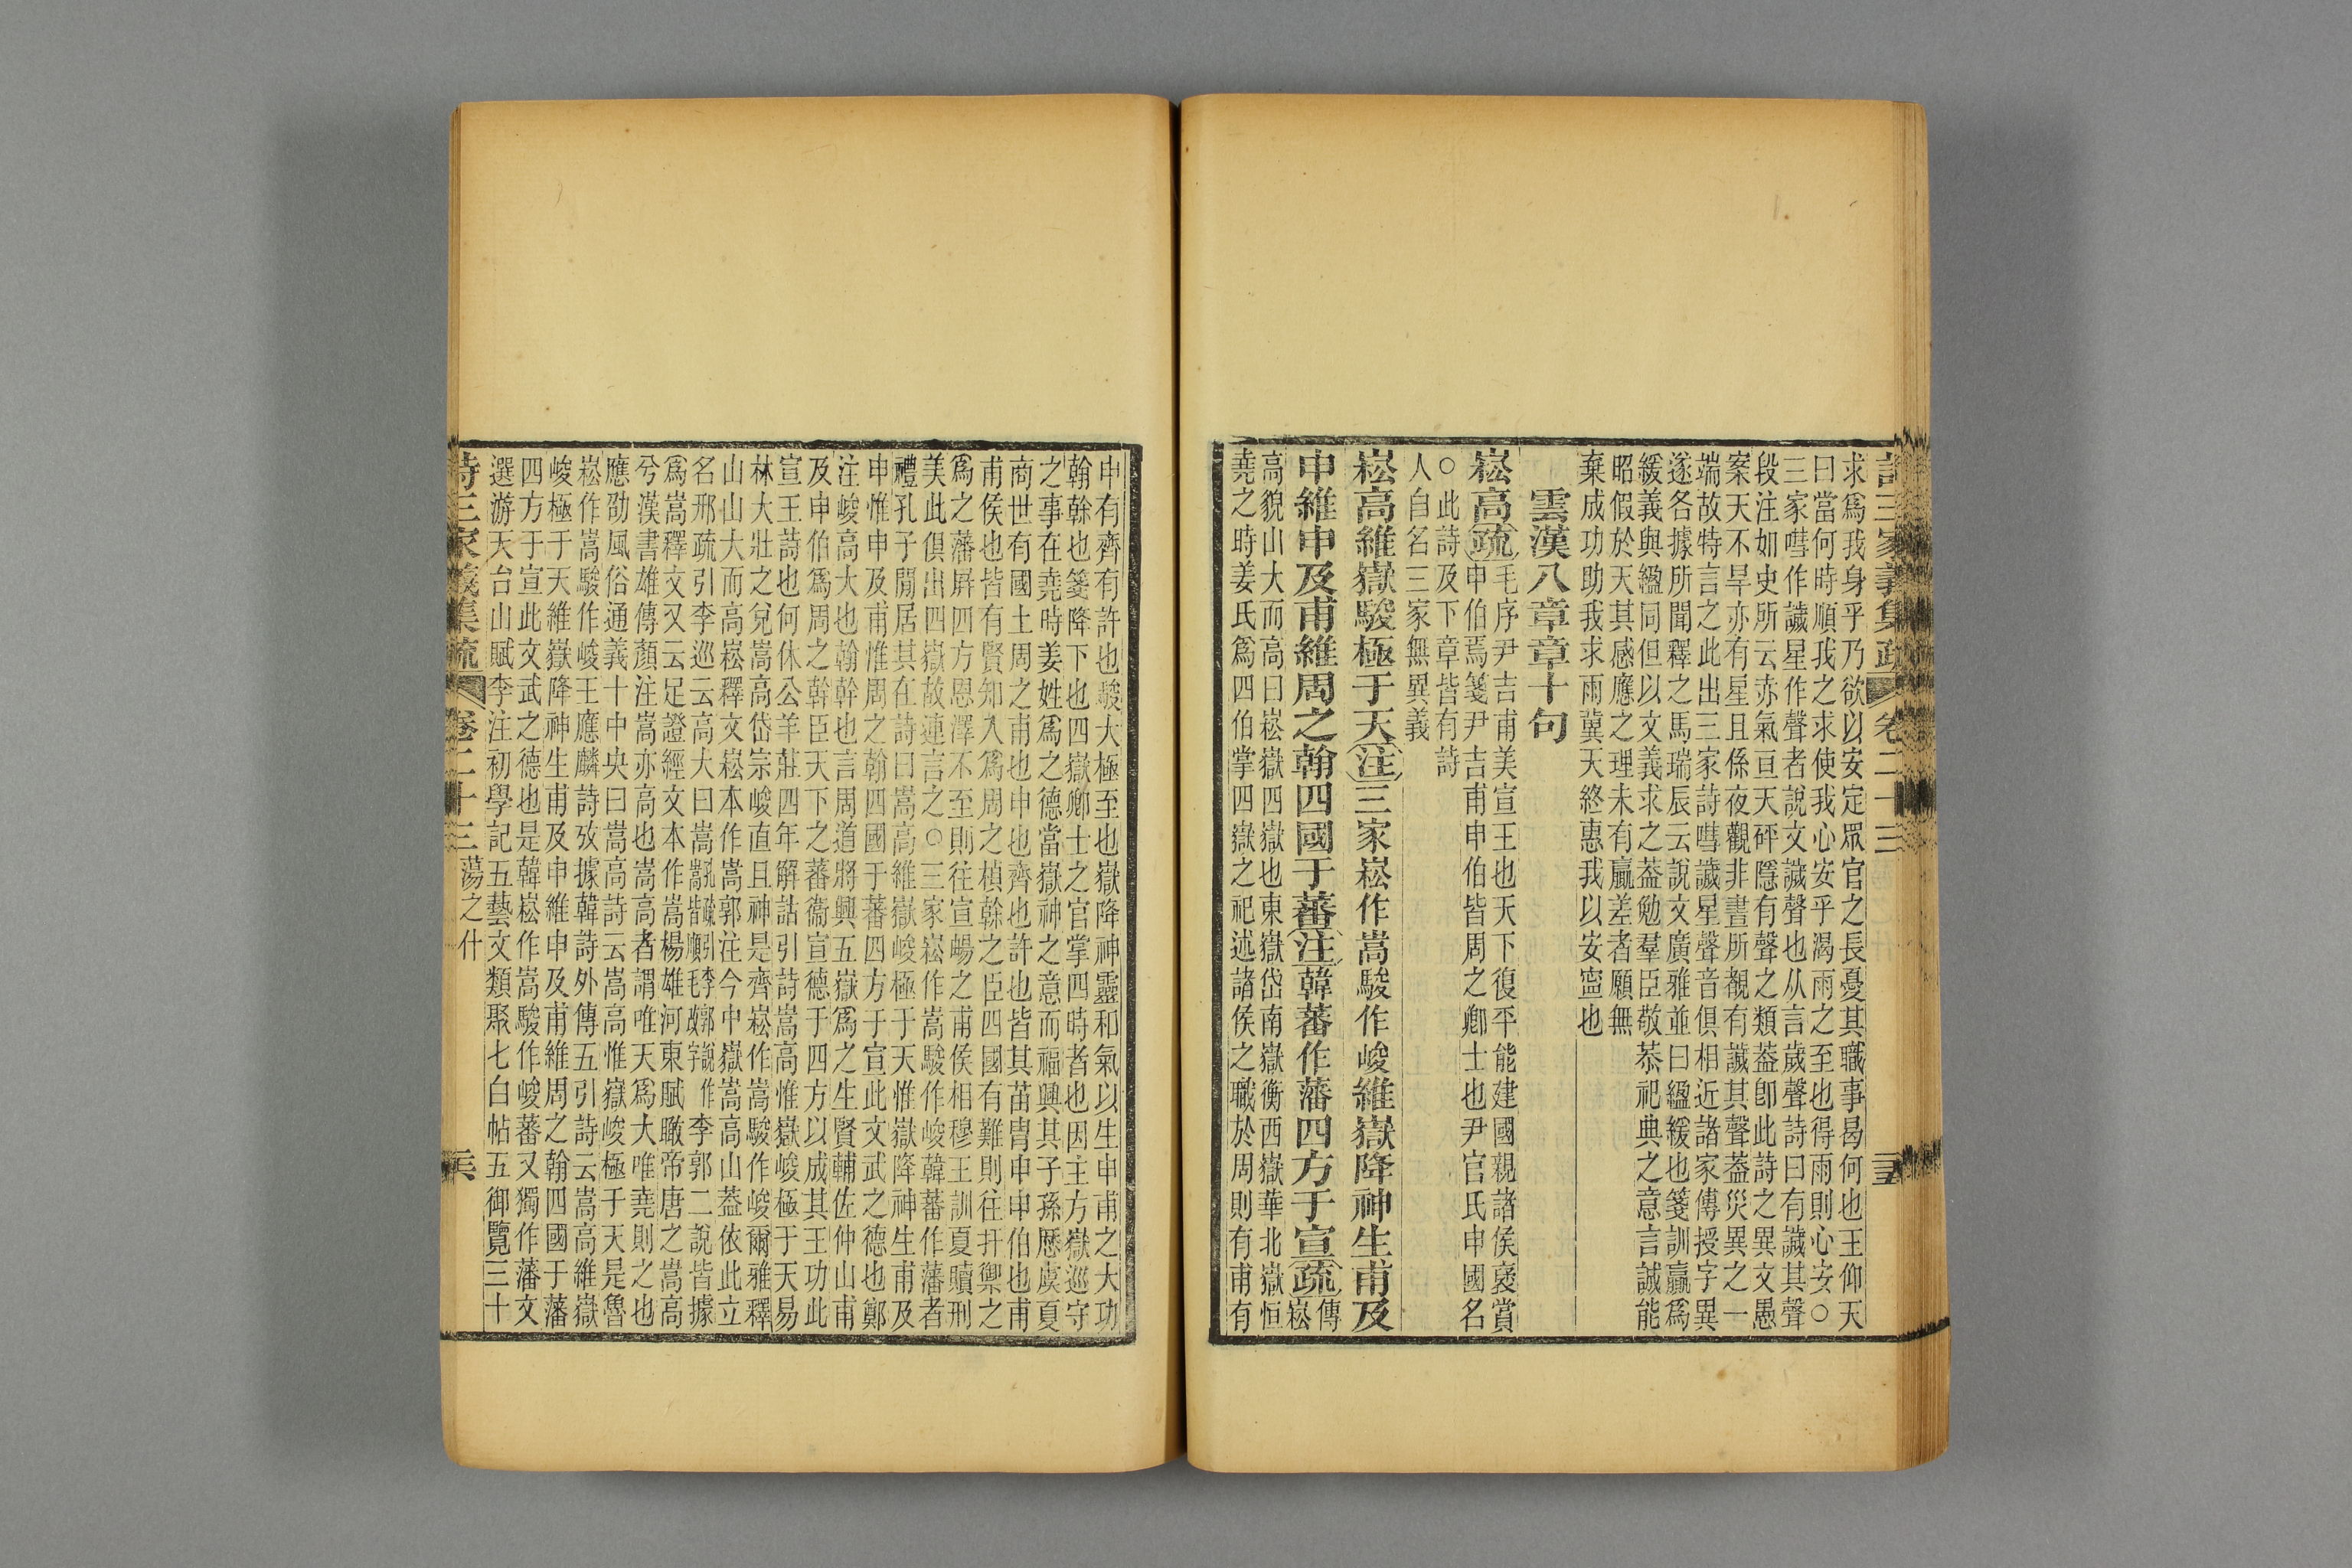 詩三家義集疏 卷二十三 三五
求爲我身乎乃欲以安定眾官之長憂其職事曷何也王仰天
曰當何時順我之求使我心安乎渴雨之至也得雨則心安○
三家嘒作䜋星作聲者說文䜋聲也从言歲聲詩曰有䜋其聲
段注如史所云赤氣亘天砰隱有聲之類葢卽此詩之異文愚
案天不旱亦有星且係夜觀非晝所覩有䜋其聲葢災異之一
端故特言之此出三家詩嘒䜋星聲音俱相近諸家傳授字異
遂各據所聞釋之馬瑞辰云說文廣雅並曰緼緩也箋訓贏爲
緩義與緼同但以文義求之葢勉羣臣敬恭祀典之意言誠能
昭假於天其感應之理未有贏差者願無
棄成功助我求雨冀天終惠我以安寍也
雲漢八章章十句
崧高疏毛序尹吉甫美宣王也天下復平能建國親諸侯褒賞
申伯焉箋尹吉甫申伯皆周之卿士也尹官氏申國名
○此詩及下章皆有詩
人自名三家無異義
崧高維嶽駿極于天注三家崧作嵩駿作峻維嶽降神生甫及
申維申及甫維周之翰四國于蕃注韓蕃作藩四方于宣疏傳
崧
高貌山大而高曰崧嶽四嶽也東嶽岱南嶽衡西嶽華北嶽恒
堯之時姜氏爲四伯掌四嶽之祀述諸侯之職於周則有甫有
申有齊有許也駿大極至也嶽降神靈和氣以生申甫之大功
翰榦也箋降下也四嶽卿士之官掌四時者也因主方嶽巡守
之事在堯時姜姓爲之德當嶽神之意而福興其子孫歷虞夏
商世有國土周之甫也申也齊也許也皆其苗冑申申伯也甫
甫侯也皆有賢知入爲周之楨榦之臣四國有難則往扞禦之
爲之藩屏四方恩澤不至則往宣暢之甫侯相穆王訓夏贖刑
美此俱出四嶽故連言之○三家崧作嵩駿作峻韓蕃作藩者
禮孔子閒居其在詩曰嵩高維嶽峻極于天惟嶽降神生甫及
申惟申及甫惟周之翰四國于蕃四方于宣此文武之德也鄭
注峻高大也翰幹也言周道將興五嶽爲之生賢輔佐仲山甫
及申伯爲周之幹臣天下之蕃衞宣德于四方以成其王功此
宣王詩也何休公羊莊四年解詁引詩嵩高惟嶽峻極于天易
林大壯之兌嵩高岱宗峻直且神是齊崧作嵩駿作峻爾雅釋
山山大而高崧釋文崧本作嵩郭注今中嶽嵩高山葢依此立
名邢疏引李巡云高大曰嵩孔疏引李郭說作嵩皆順毛改字李郭二說皆據
爲嵩釋文又云足證經文本作嵩楊雄河東賦瞰帝唐之嵩高
兮漢書雄傳顏注嵩亦高也嵩高者謂唯天爲大唯堯則之也
應劭風俗通義十中央曰嵩高詩云嵩高惟嶽峻極于天是魯
崧作嵩駿作峻王應麟詩攷據韓詩外傳五引詩云嵩高維嶽
峻極于天維嶽降神生甫及申維申及甫維周之翰四國于藩
四方于宣此文武之德也是韓崧作嵩駿作峻蕃又獨作藩文
選游天台山賦李注初學記五藝文類聚七白帖五御覽三十
詩三家義集疏 卷二十三 蕩之什 三六